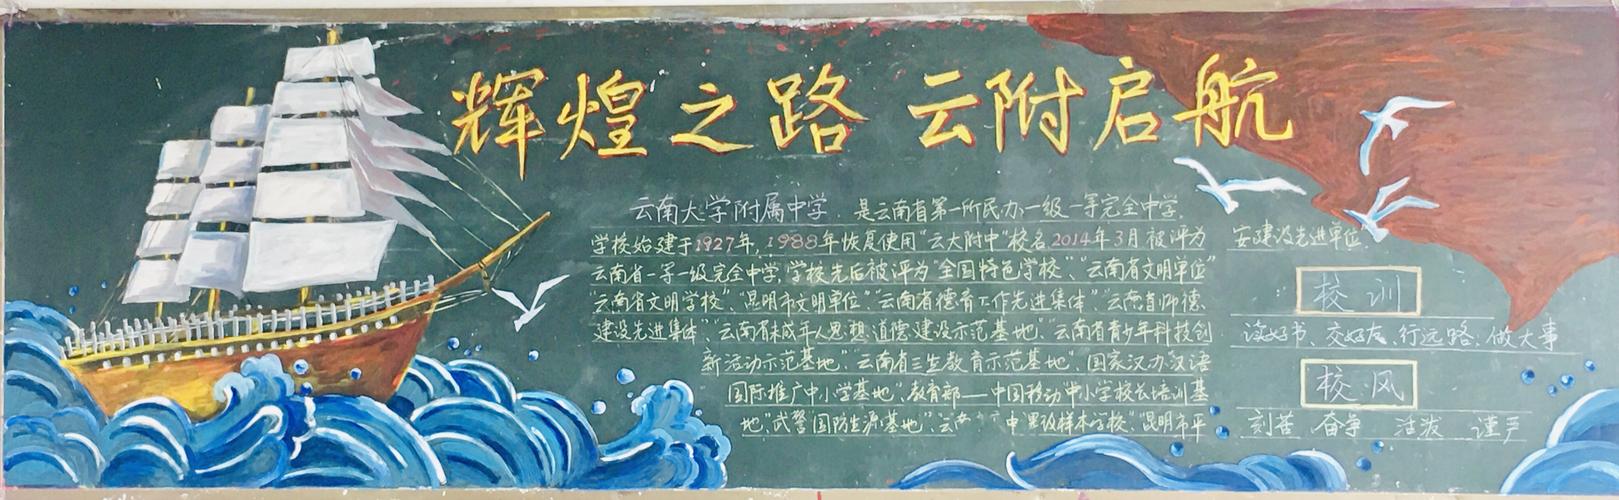 辉煌之路 云附启航
云南大学附属中学．是云南省第一所民办一级一等完全中学．
学校始建于1927年，1988年恢复使用"云大附中"校名2014年3月被评为
云南省一等一级完全中学,学校先后被评为"全国特色学校"、"云南省文明单位"
"云南省文明学校"、"昆明市文明单位"、"云南省德育工作先进集体"、"云南省师德
建设先进集体"、云南省未成年人思想道德建设示范基地"、云南省青少年科技创
新活动示范基地"、云南省三生教育示范基地"、国家汉办汉语
国际推广中小学基地"、教育部——中国移动中小学校长培训基
地"、武警国防生源基地"、云南 中 课改样本学校"、"昆明市平
安建设先进单位．
校训
读好书、交好友、行远路、做大事
校风
刻苦 奋争 活泼 谨严